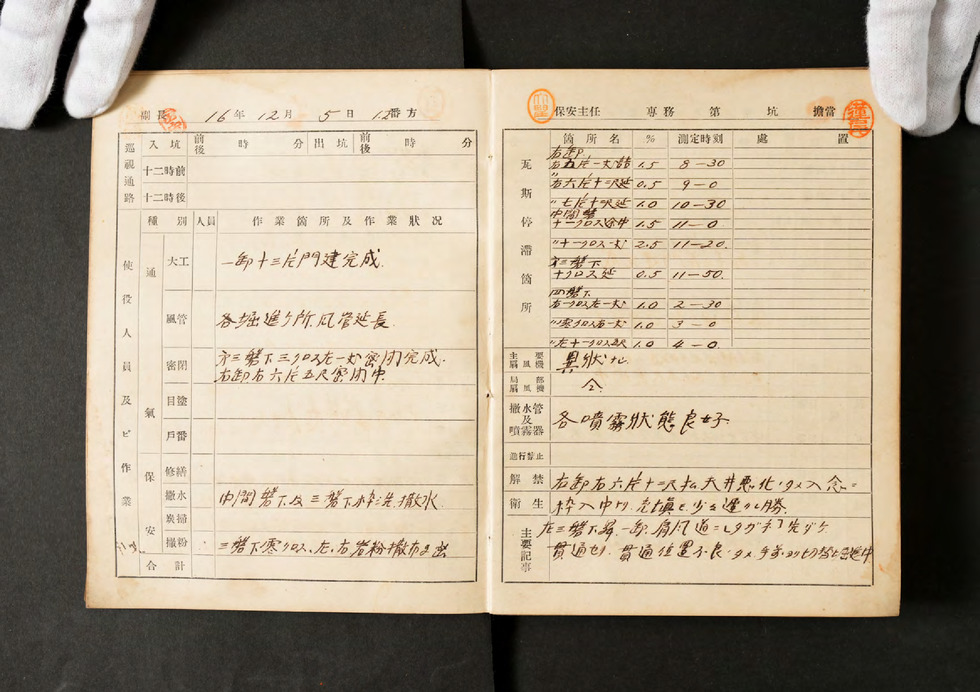 係長 16年12月5日1.2番方
巡視通路 入坑 前後 時 分 出坑 前後 時 分
十二時前
十二時後
使役人員及ビ作業
種別 人員 作業箇所及作業狀況
通氣
大工 一卸十三片門建完成.
風管 各堀進ケ所.風管延長.
密閉 三磐下三クロス左一 密閉完成.
右卸右六片五尺密閉中.
目塗
戶番
保安
修繕
撒水 中間磐下及三磐下枠洗撒水
炭掃
撒粉 三磐下零クロス、左、右岩粉撒布
合計
保安主任 専務 第 坑 擔當
瓦斯停滯箇所
箇所名 % 測定時刻 處置
右卸
右五片一 1.5 8-30
〃右六片十二尺延 0.5 9-0
〃七片十 延 1.0 10-30
中間磐
十一クロス 1.5 11-0
〃十一クロス 2.5 11-20.
三磐下
十クロス延 0.5 11-50.
四磐下
右一クロス左一 1.0 2-30
〃零クロス右一 1.0 3-0
〃左十一クロス 1.0 4-0.
主要扇風機 異狀ナシ
局部扇風機 仝.
撒水管及噴霧器 各噴霧狀態良好
進行禁止
解禁
衛生
右卸右六片十二尺払天井悪化ノタメ入念ニ
枠入中ナリ. 充塡モ少々遅れ勝.
主要記事
左三磐下 一卸.肩風道
貫通セリ. 貫通位置不良ノタメ